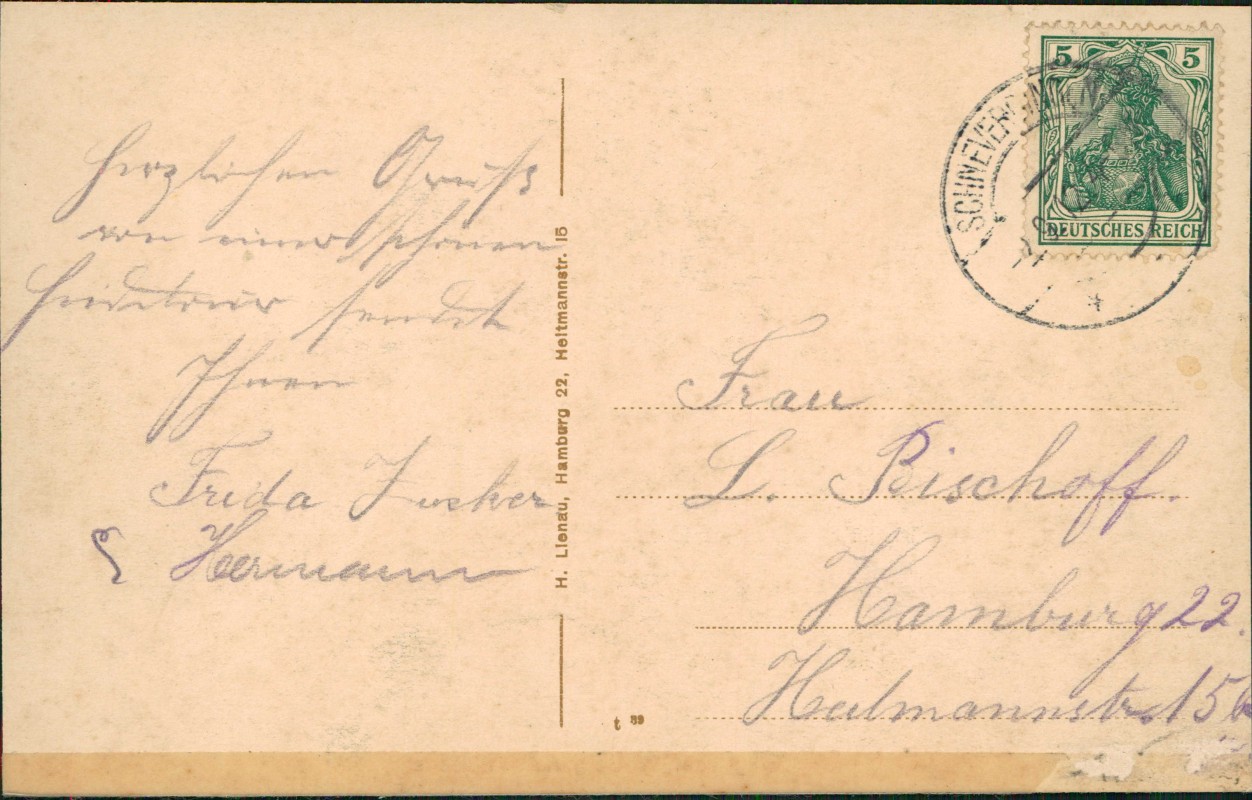 Herzlichen Gruß
von einer schönen
Heidetour sendet
Ihnen
Frida
Hermann
H. Lienau, Hamburg 22, Heitmannstr. 15
5 5
DEUTSCHES REICH
SCHNEVERDINGEN
Frau
L. Bischoff.
Hamburg 22.
Heitmannstr. 15
t 39